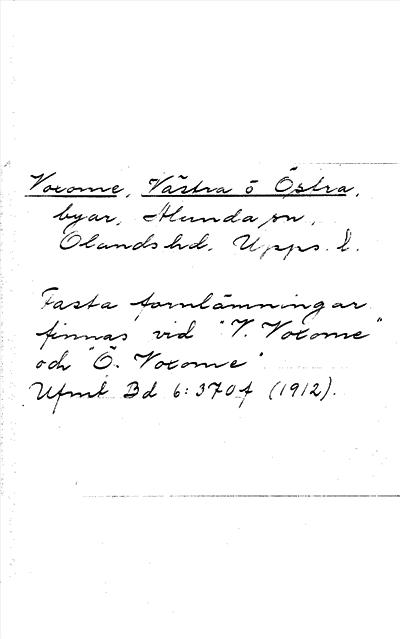 Voxome, Västra o Östra,
byar, Alunda sn,
Olands hd. Upps. l.
Fasta fornlämningar
finnas vid "V. Voxome"
och "Ö. Voxome"
Ufmt Bd 6:370f (1912).